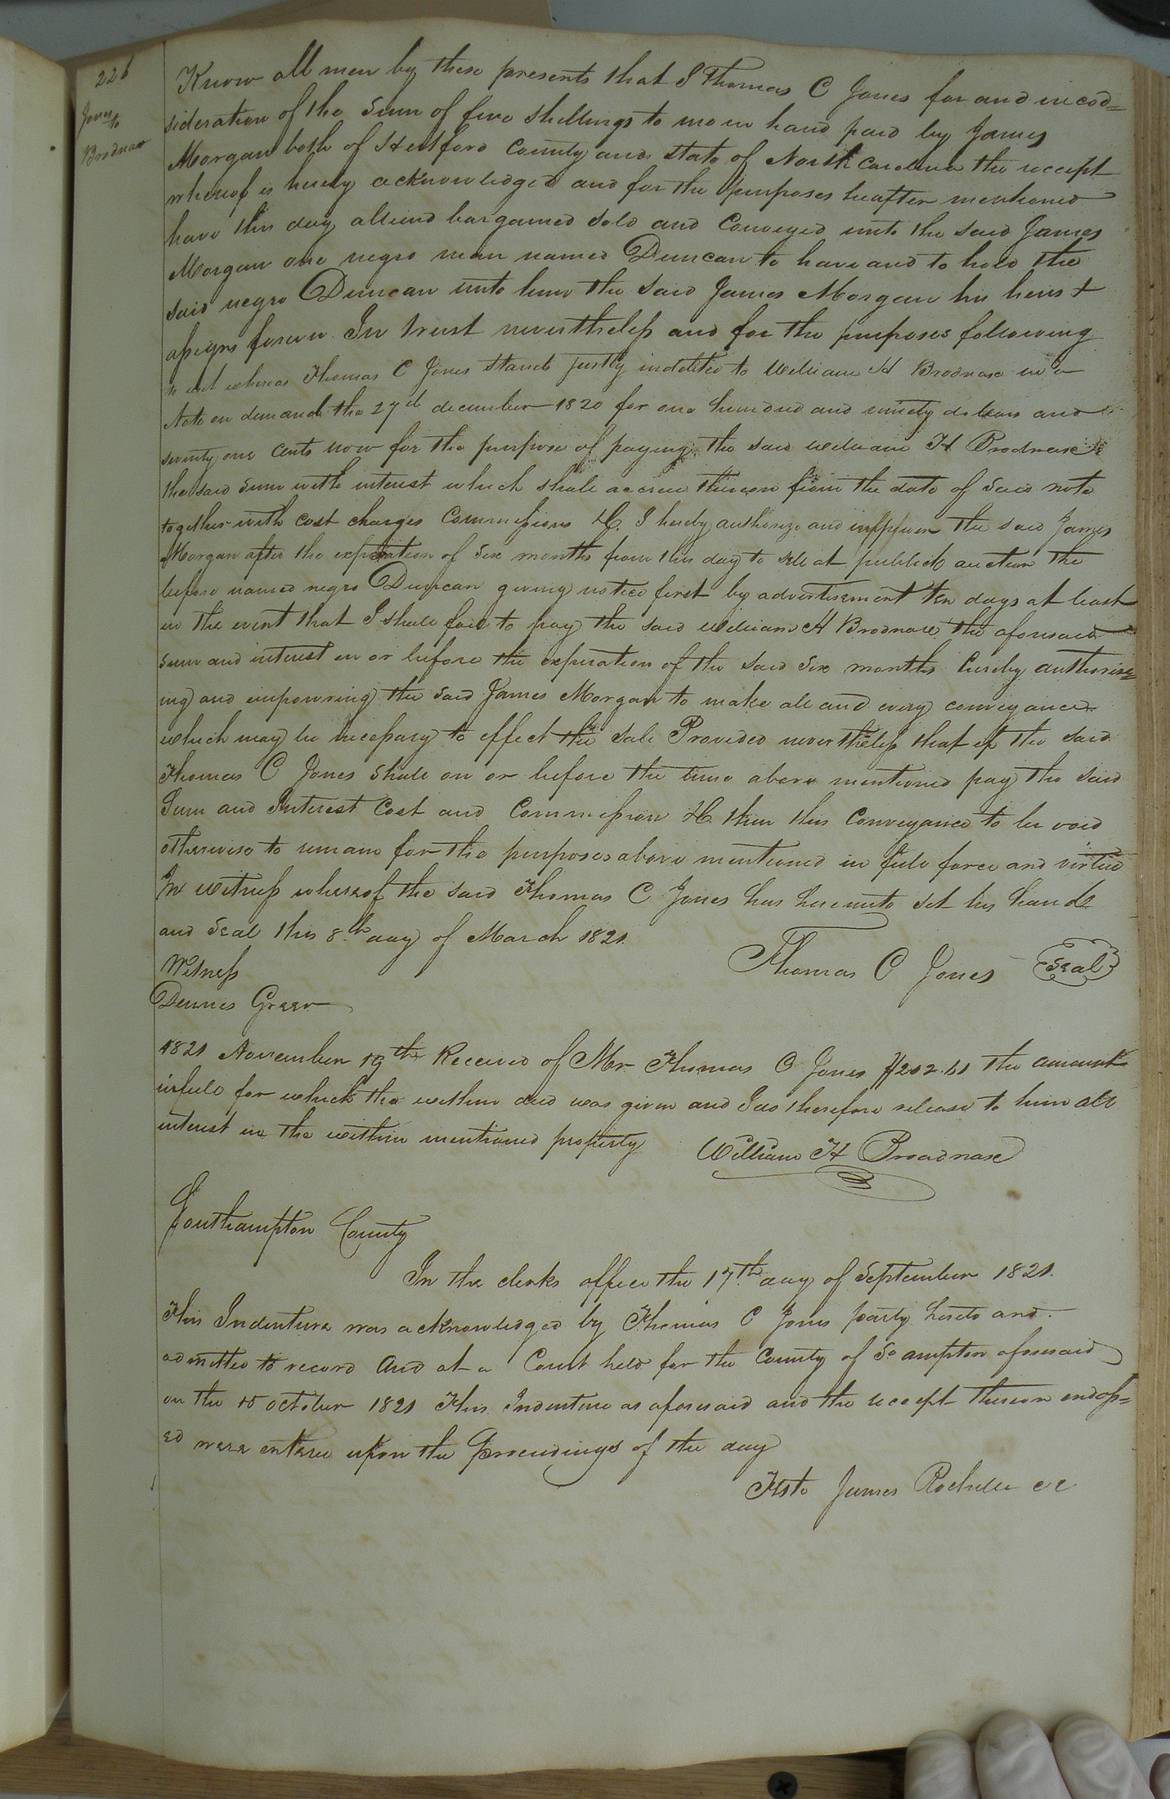 226
Jones
to
Brodnax
Know all men by these presents that I Thomas C Jones for and in cod=
sideration of the Sum of five Shillings to me in hand paid by James
Morgan both of Hertford County and state of North carolina the receipt
whereof is hereby acknowledged and for the purposes heafter mentioned
have this day aliend bargained Sold and Conveyed unto the said James
Morgan one negro man named Duncan to have and to hold the
said negro Duncan unto him the said James Morgan his heirs &
assigns forever In trust neverthless and for the purposes following
to wit whereas Thomas C Jones Stands justly indebted to William H Brodnax in a
Note on demand the 27th december 1820 for one hundred and ninety dollars and
seventy one cents now for the purpose of paying the said william H Brodnax
the said Sum with interest which shall accrue thereon from the date of Said note
together with cost charges Commissions &C, I hereby authorize and impower the said James
Morgan after the expiration of Six months from this day to sell at publick auction the
before named negro Duncan giving notice first by advertisement ten days at least
in the event that I shall fail to pay the said William H Brodnax the aforesaid
Sum and interest on or before the expiration of the Said Six months hereby authoris=
ing and impowring the said James Morgan to make all and every conveyance
which may be necessary to effect the Sale Provided neverthelss that if the said
Thomas C Jones Shall on or before the time above mentioned pay the said
Sum and Interest Cost and Commission &C then this Conveyance to be void
otherwise to remain for the purposes above mentioned in full force and virtue
In witness whereof the said Thomas C Jones has hereunto set his hand
and Seal this 8th day of March 1821
Thomas C Jones Seal
Witness
Dennis Greer
1821 November 19th Received of Mr Thomas C Jones $202.61 the amount
in full for which the within deed was given and I do therefore release to him all
interest in the within mentioned property William H Broadnax
Southampton County
In the clerks office the 17th day of September 1821.
This Indenture was acknowledged by Thomas C Jones party hereto and
admitted to record And at a Court held for the County of So ampton aforesaid
on the 15 october 1821 This Indenture as aforesaid and the receipt thereon endors=
ed were entered upon the Proceedings of the day
Teste James Rochelle cc